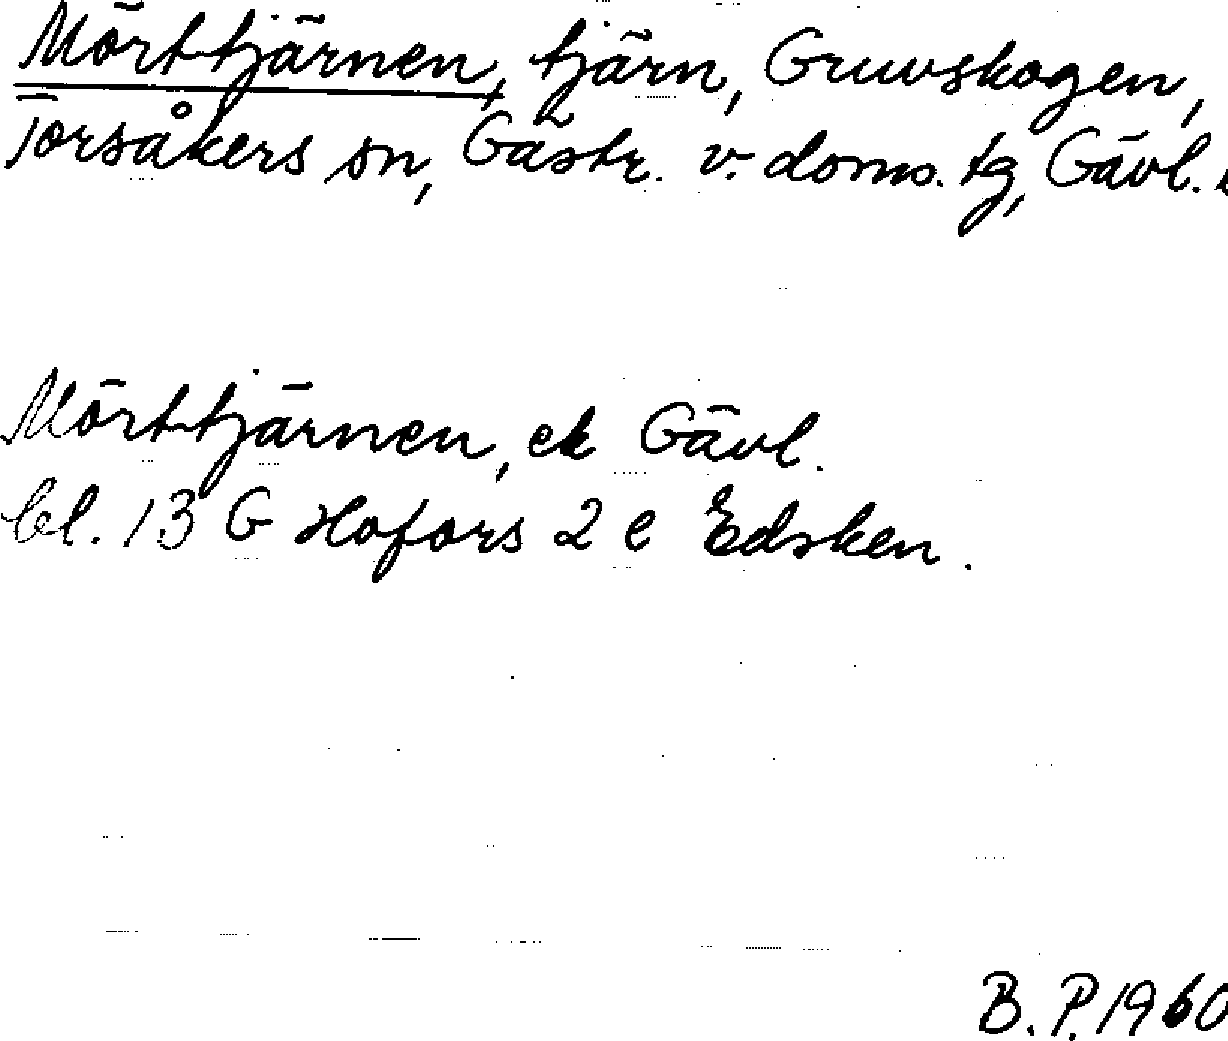 Mörttjärnen, tjärn, Gruvskogen,
Torsåkers sn, Gästr. v. doms. tg, Gävl.
Mörttjärnen, ek Gävl.
bl. 13 G Hofors 2 e Edsken.
B. P. 1960